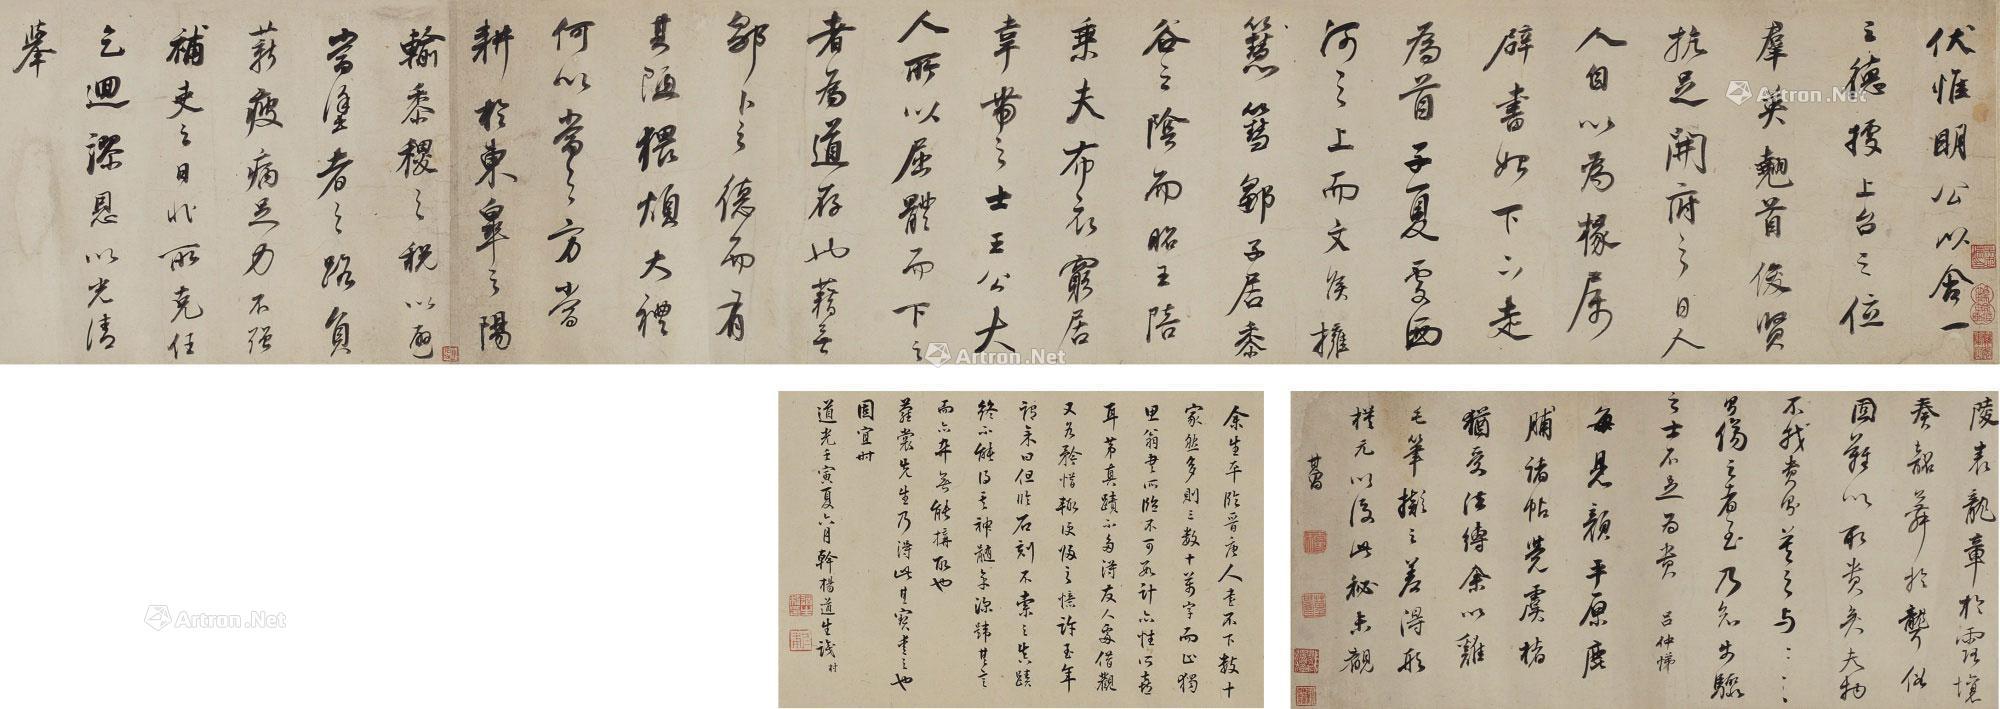 伏惟明公以含一
之德據上台之位
羣英翹首俊賢
抗足開府之日人
人自以為掾属
辟書始下下走
為首子夏處西
河之上而文侯擁
篲鄒子居黍
谷之陰而昭王陪
乗夫布衣窮居
韋帶之士王公大
人所以屈體而下之
者為道存也藉無
鄒卜之德而有
其陋猥煩大禮
何以當之方當
耕於東皋之陽
輸黍稷之税以避
當塗者之路負
薪疲病足力不强
補吏之日非所克任
乞迴謬恩以光清
舉
陵表龍章於
奏韶舞於聾俗
固難以取貴矣夫物
不我貴則莫之與
傷之者至乃
之士不足為貴 呂仲悌
每見顏平原鹿
脯諸帖覺虞褚
猶受法縛余以雞
毛筆擬之差得形
模元以後此秘未覩
其昌
余生平臨晋唐人書不下數十
家然多則三數十萬字而止獨
思翁書所臨不可數計亦性所喜
耳第真蹟不多得友人處借觀
又若矜惜輒便
曰但臨石刻不索之真蹟
終不能得其神髓余深韙其言
而亦弃無能搆取也
蘿裳先生乃得此其寳書之也
固宜
道光壬寅夏六月幹楊道生識
Artron.Net
Artron.Net
Artron.Net
Artron.Net